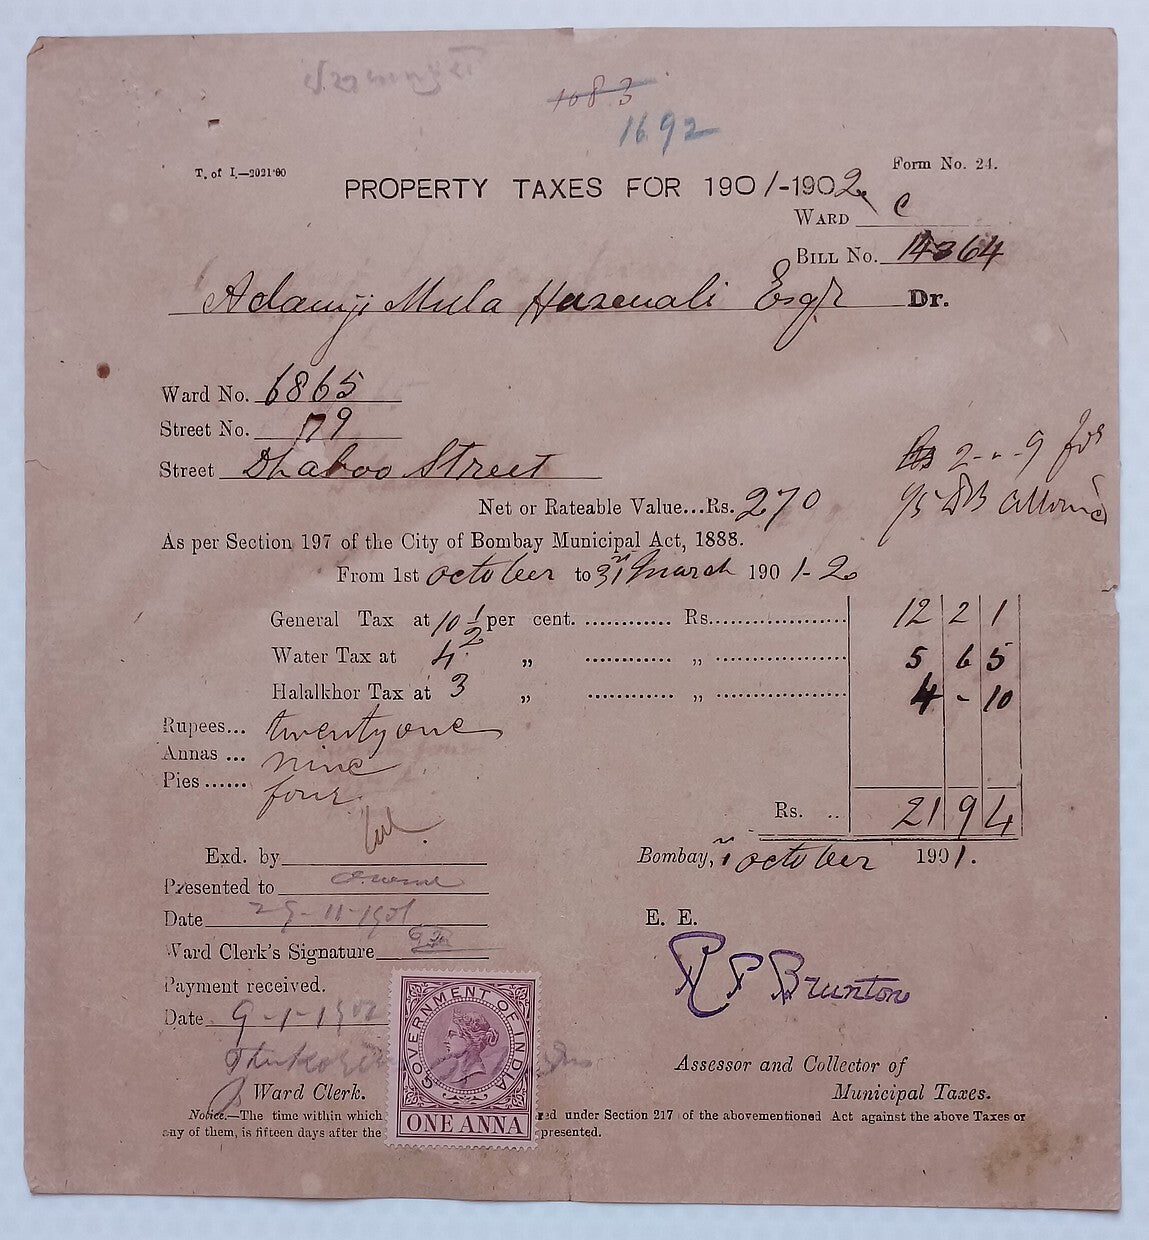 1083
1692
T. of I.—2021'00
Form No. 24.
PROPERTY TAXES FOR 1901-1902
WARD C
BILL No. 14364
Adamji Mula Hasenali Esqr Dr.
Ward No. 6865
Street No. 179
Street Dhaboo Street
2-"-9 for
Net or Rateable Value...Rs. 270
As per Section 197 of the City of Bombay Municipal Act, 1888.
From 1st october to 31st March 1901-2
General Tax at 10 1/2 per cent. ............ Rs.................... 12 2 1
Water Tax at 4 „ ............ „ .................... 5 6 5
Halalkhor Tax at 3 „ ............ „ .................... 4 - 10
Rupees... twenty one
Annas ... nine
Pies ...... four
Rs. .. 21 9 4
Exd. by
Bombay, 1st october 1901.
Presented to
Date 29-11-1901
E. E.
Ward Clerk's Signature
R P Brunton
Payment received.
Date 9-1-1902
Assessor and Collector of
Municipal Taxes.
Ward Clerk.
GOVERNMENT OF INDIA
ONE ANNA
Notice.—The time within which
red under Section 217 of the abovementioned Act against the above Taxes or
any of them, is fifteen days after the
presented.